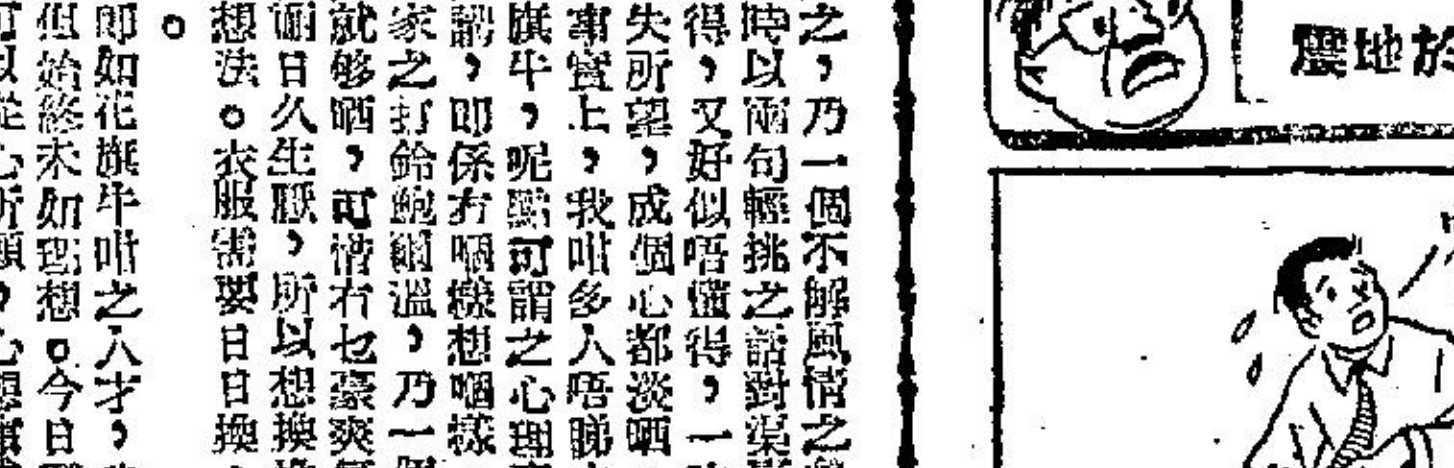 於地震
之,乃一個不解風情之
時以兩句輕挑之話對渠
得,又好似唔懂得,一
失所望,成個心都淡晒
事實上,我咁多人唔睇
旗牛,呢點可謂之心理
謂,即係冇嗰樣想嗰樣
家之打鈴鮑爾溫,乃一個
就够晒,可惜冇乜豪爽
日久生厭,所以想換
想法。衣服需要日日換
。
即如花旗牛咁之人才,
但始終未如理想。今日
以從心所願,心想